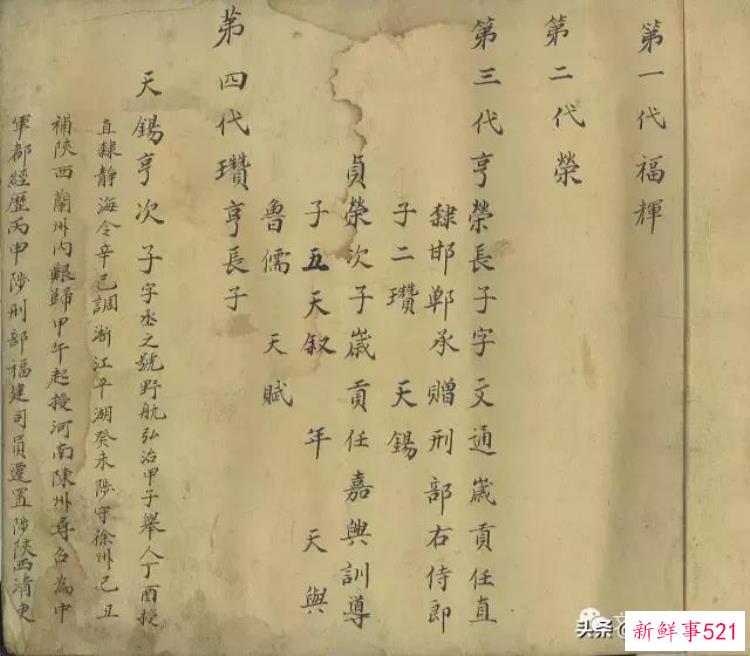 第一代福輝
第二代榮
第三代亨榮長子字文通歲貢任直
隸邯鄲承贈刑部右侍郎
子二瓚 天錫
貞榮次子歲貢任嘉興訓導
子五天叙 年 天與
魯儒 天賦
第四代瓚亨長子
天錫亨次子字丞之號野航弘治甲子舉人丁酉授
直隸靜海令辛巳調浙江平湖癸未陟守徐州己丑
補陝西蘭州內艱歸甲午起授河南陳州尋台為中
軍都經歷丙申陟刑部福建司員置陟陝西清吏
头条
新鲜事521